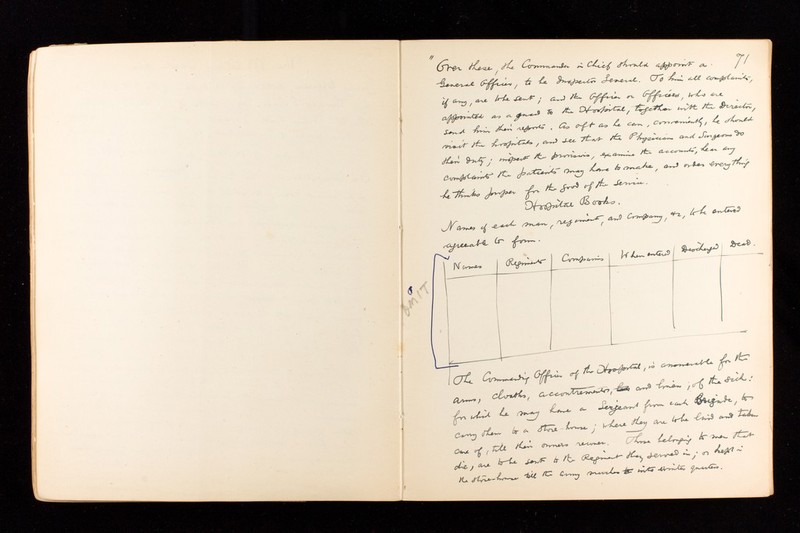 71
"Over these, the Commander in Chief should appoint a
General Officer, to be Inspector General. To him all complaints,
if any, are to be sent; and the Officer or Officers, who are
appointed as a guard to the Hospital, together with the Director,
send him their reports. As oft as he can, conveniently, he should
visit the hospitals, and see that the Physicians and Surgeons do
their duty; inspect the provisions, examine the accounts, hear any
complaints the patients may have to make, and order everything
he thinks proper for the good of the service.
Hospital Books.
Names of each man, regiment, and Company, &c, to be entered
agreeable to form.
Names Regiments Companies When entered Discharged Dead.
OMIT
The Commanding Officer of the Hospital, is answerable for the
arms, cloaths, accoutrements, and linen, of the sick:
for which he may have a Serjeant from each Brigade, to
carry them to a store-house; where they are to be laid and taken
care of, till their owners recover. Those belonging to men that
die, are to be sent to the Regiment they served in; or kept in
the storehouse till the army marches into winter quarters.